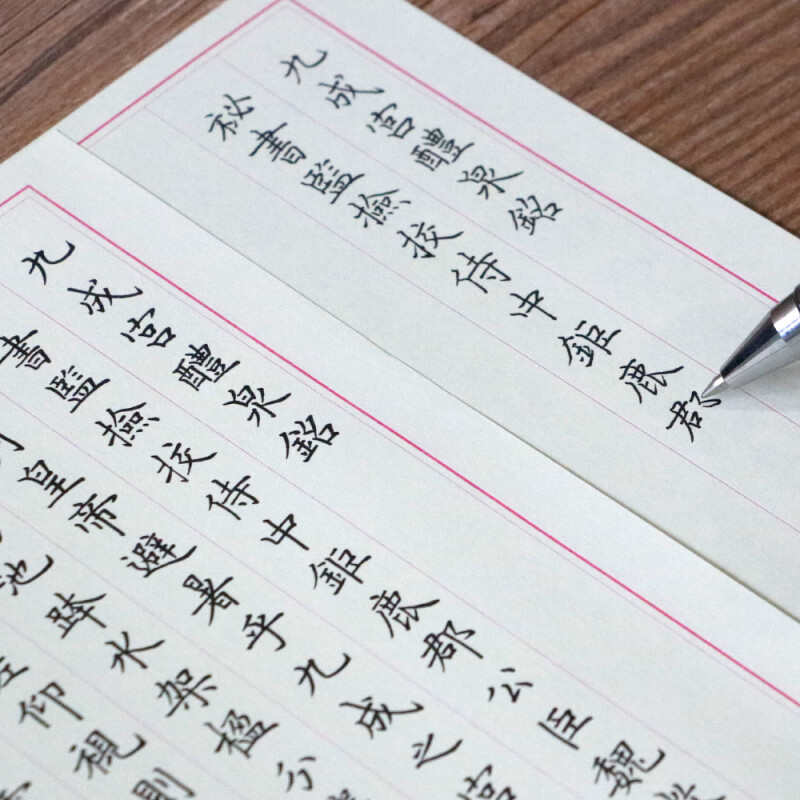 九成宮醴泉銘
祕書監撿挍侍中鉅鹿郡
九成宮醴泉銘
書監撿挍侍中鉅鹿郡公臣魏
皇帝避暑乎九成之宮
池跨水架楹分
仰視則